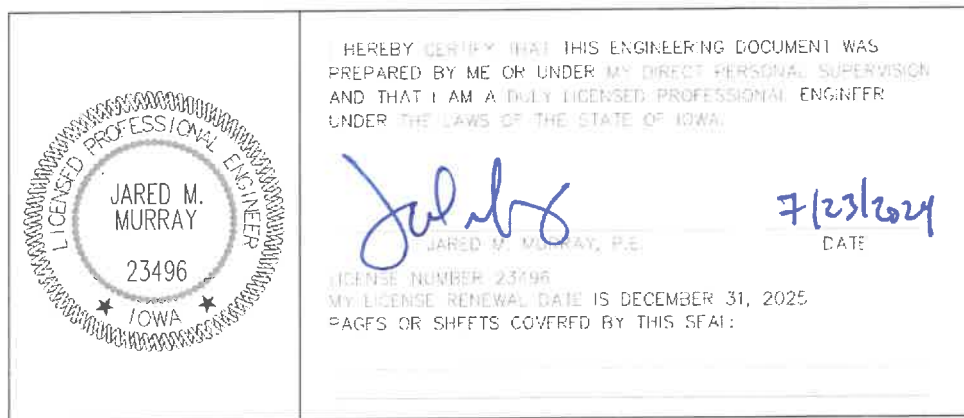 LICENSED PROFESSIONAL ENGINEER
JARED M.
MURRAY
23496
★ IOWA ★
I HEREBY CERTIFY THAT THIS ENGINEERING DOCUMENT WAS
PREPARED BY ME OR UNDER MY DIRECT PERSONAL SUPERVISION
AND THAT I AM A DULY LICENSED PROFESSIONAL ENGINEER
UNDER THE LAWS OF THE STATE OF IOWA.
7/23/2024
JARED M. MURRAY, P.E.
DATE
LICENSE NUMBER 23496
MY LICENSE RENEWAL DATE IS DECEMBER 31, 2025
PAGES OR SHEETS COVERED BY THIS SEAL: